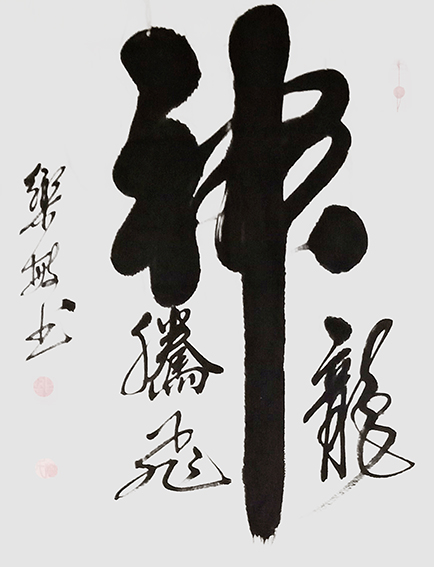 神
龍
騰飛
樂 书